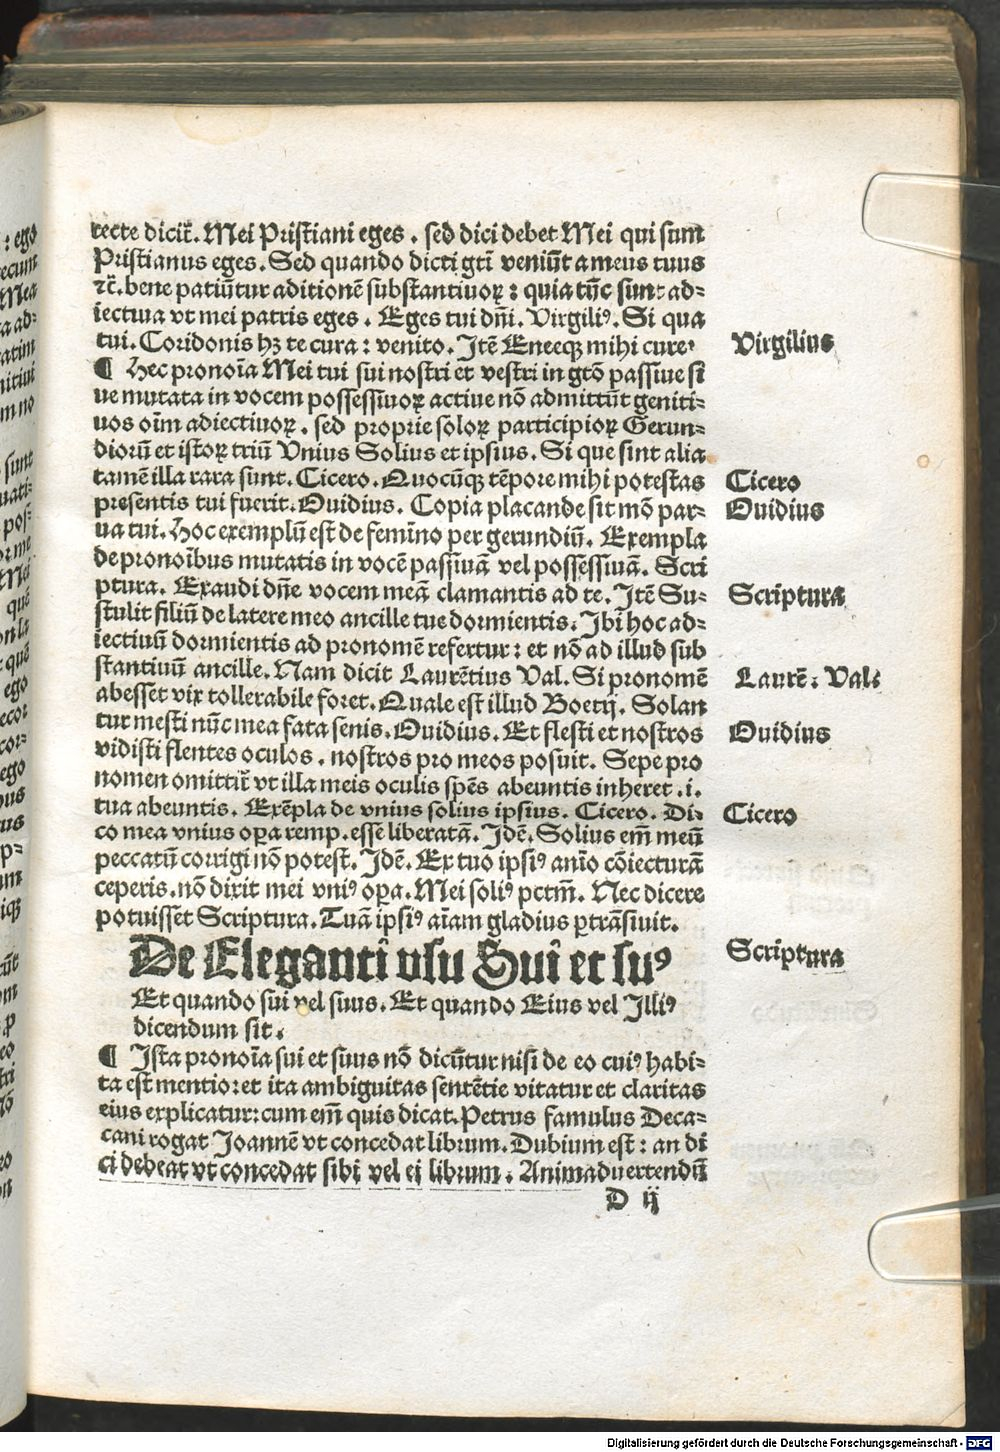 recte dicit᷑. Mei Pristiani eges . sed dici debet Mei qui sum
Pristianus eges. Sed quando dicti gtī veniūt a meus tuus
⁊c̃. bene patiūtur aditionē substantiuoꝝ : quia tūc sunt ad⸗
iectiua vt mei patris eges . Eges tui dn̄i. Virgiliꝰ. Si qua
tui. Coridonis hꝫ te cura : venito. Itē Eneeqꝫ mihi cure
Virgilius
¶ Hec pronoīa Mei tui sui nostri et vestri in gtō passiue si
ue mutata in vocem possessiuoꝝ actiue nō admittūt geniti⸗
uos oīm adiectiuoꝝ . sed proprie soloꝝ participioꝝ Gerun⸗
dioꝛū et istoꝝ triū Vnius Solius et ipsius. Si que sint alia
tamē illa rara sunt. Cicero. Quocūqꝫ tēpore mihi potestas
Cicero
presentis tui fuerit. Ouidius. Copia placande sit mō par⸗
Ouidius
ua tui. Hoc exemplū est de femīno per gerundiū. Exempla
de pronoībus mutatis in vocē passiuā vel possessiuā. Scri
ptura. Exaudi dn̄e vocem meā clamantis ad te. Itē Su⸗
Scriptura
stulit filiū de latere meo ancille tue dormientis. Ibi hoc ad⸗
iectiuū dormientis ad pronomē refertur : et nō ad illud sub
stantiuū ancille. Nam dicit Laurētius Val. Si pronomē
Laurē. Val.
abesset vix tollerabile foret. Quale est illud Boetij. Solan
tur mesti nūc mea fata senis. Ouidius. Et flesti et nostros
Ouidius
vidisti flentes oculos . nostros pro meos posuit. Sepe pro
nomen omittit᷑ vt illa meis oculis spēs abeuntis inheret .i.
tua abeuntis. Exēpla de vnius solius ipsius. Cicero. Di⸗
Cicero
co mea vnius oꝑa remp. esse liberatā. Idē. Solius em̄ meū
peccatū corrigi nō potest. Idē. Ex tuo ipsiꝰ anīo cōiecturā
ceperis. nō dixit mei vniꝰ oꝑa. Mei soliꝰ pctm̄. Nec dicere
potuisset Scriptura. Tuā ipsiꝰ aīam gladius ꝑtrāsiuit.
Scriptura
De Elegantî vsu Suî et suꝰ
Et quando sui vel suus. Et quando Eius vel Illiꝰ
dicendum sit.
¶ Ista pronoīa sui et suus nō dicūtur nisi de eo cuiꝰ habi⸗
ta est mentio: et ita ambiguitas sentētie vitatur et claritas
eius explicatur: cum em̄ quis dicat. Petrus famulus Deca⸗
cani rogat Joannē vt concedat librum. Dubium est : an di
ci debeat vt concedat sibi vel ei librum . Animaduertendū
D ij
Digitalisierung gefördert durch die Deutsche Forschungsgemeinschaft - DFG